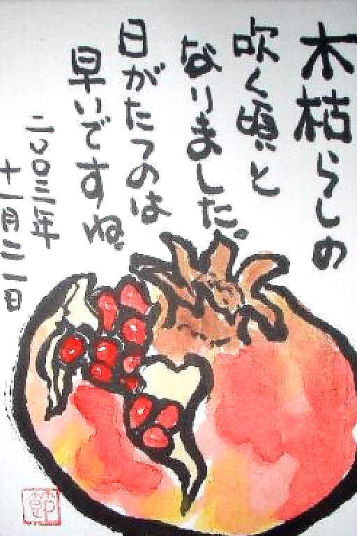 木枯らしの
吹く頃と
なりました。
日がたつのは
早いですね。
二〇〇三年
十一月二一日